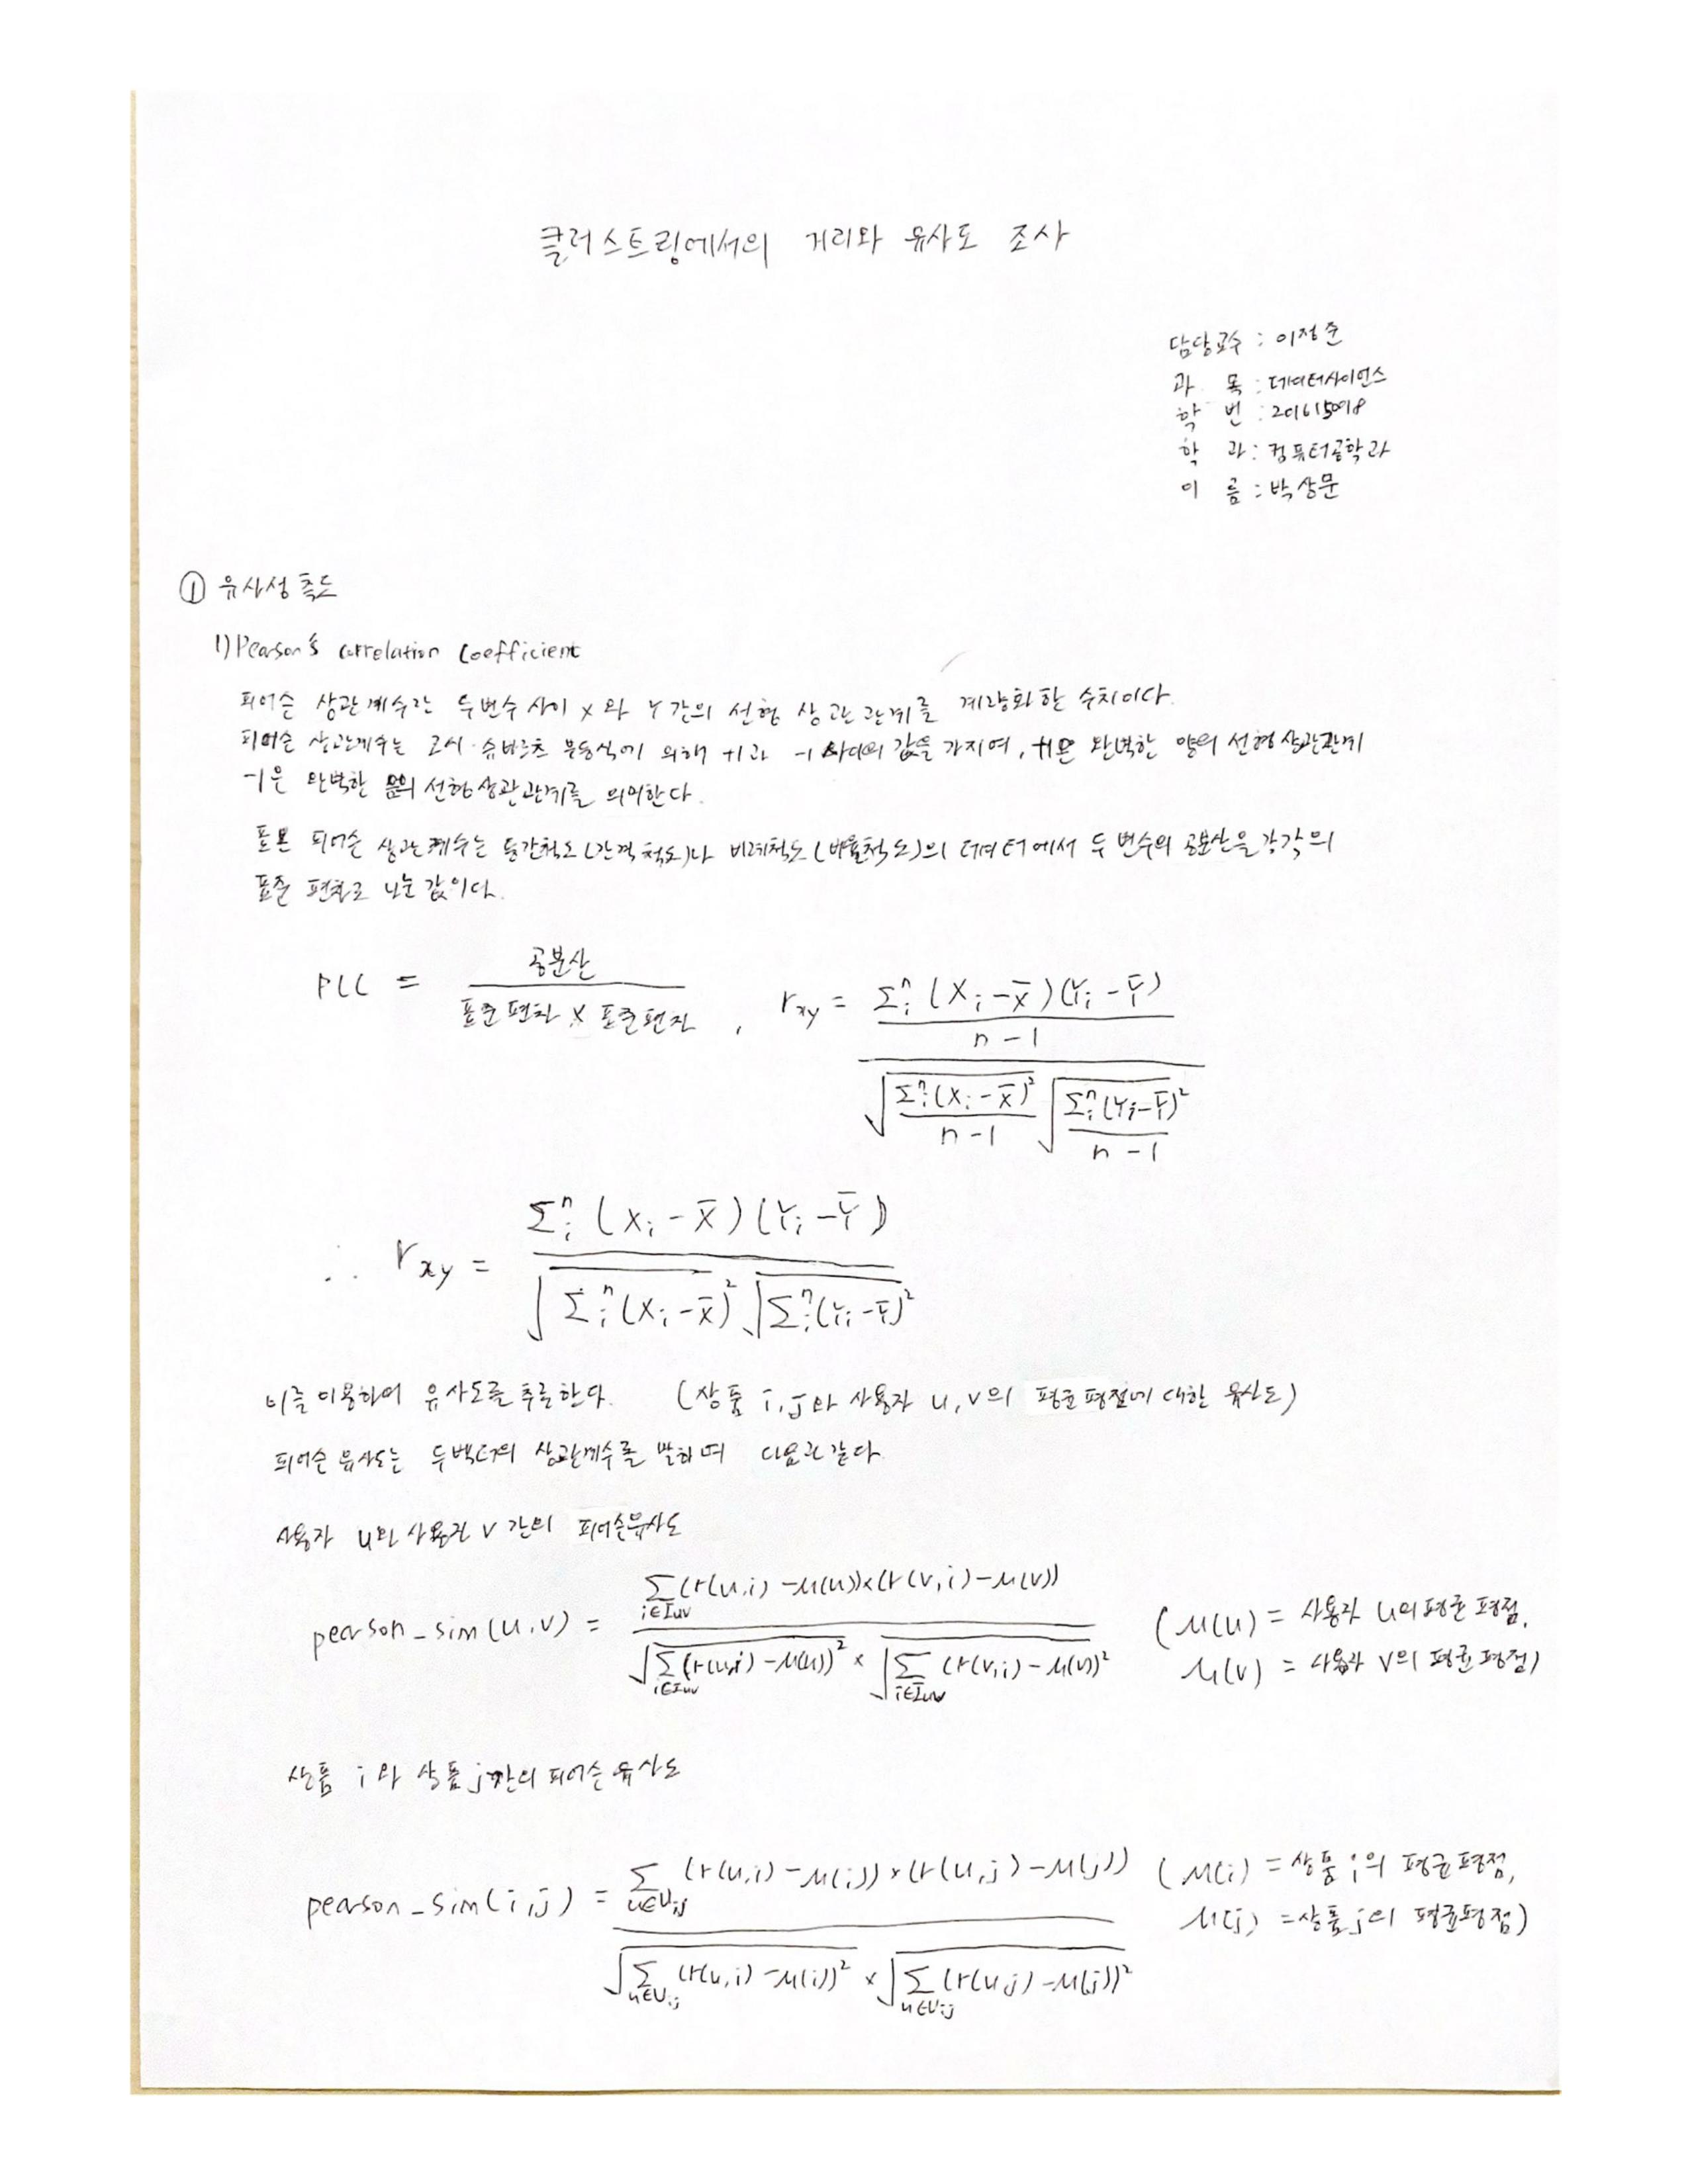 클러스트링에서의 거리와 유사도 조사
담당교수 : 이정준
과 목 : 데이터사이언스
학 번 : 201615098
학 과 : 컴퓨터공학과
이 름 : 박상문
① 유사성 측도
1) Pearson's correlation coefficient
피어슨 상관계수란 두변수 사이 X 와 Y 간의 선형 상관 관계를 계량화 한 수치이다.
피어슨 상관계수는 코시-슈바르츠 부등식에 의해 +1과 -1 사이의 값을 가지며, +1은 완벽한 양의 선형 상관관계
-1은 완벽한 음의 선형 상관관계를 의미한다.
표본 피어슨 상관계수는 등간척도(간격척도)나 비례척도(비율척도)의 데이터에서 두 변수의 공분산을 각각의
표준 편차로 나눈 값이다.
PCC = 공분산 / (표준편차 × 표준편차) , r_xy = (Σ_i^n (X_i - X̄)(Y_i - Ȳ) / (n-1)) / (√(Σ_i^n (X_i - X̄)² / (n-1)) √(Σ_i^n (Y_i - Ȳ)² / (n-1)))
∴ r_xy = Σ_i^n (X_i - X̄)(Y_i - Ȳ) / (√Σ_i^n (X_i - X̄)² √Σ_i^n (Y_i - Ȳ)²)
이를 이용하여 유사도를 추출한다. (상품 i, j와 사용자 u, v의 평균 평점에 대한 유사도)
피어슨 유사도는 두 벡터의 상관계수를 말하며 다음과 같다.
사용자 u와 사용자 v 간의 피어슨 유사도
pearson_sim(u,v) = Σ_{i∈Iuv} (r(u,i) - μ(u)) × (r(v,i) - μ(v)) / (√Σ_{i∈Iuv} (r(u,i) - μ(u))² × √Σ_{i∈Iuv} (r(v,i) - μ(v))²) (μ(u) = 사용자 u의 평균 평점,
μ(v) = 사용자 v의 평균 평점)
상품 i와 상품 j간의 피어슨 유사도
pearson_sim(i,j) = Σ_{u∈Uij} (r(u,i) - μ(i)) × (r(u,j) - μ(j)) / (√Σ_{u∈Uij} (r(u,i) - μ(i))² × √Σ_{u∈Uij} (r(u,j) - μ(j))²) (μ(i) = 상품 i의 평균 평점,
μ(j) = 상품 j의 평균평점)